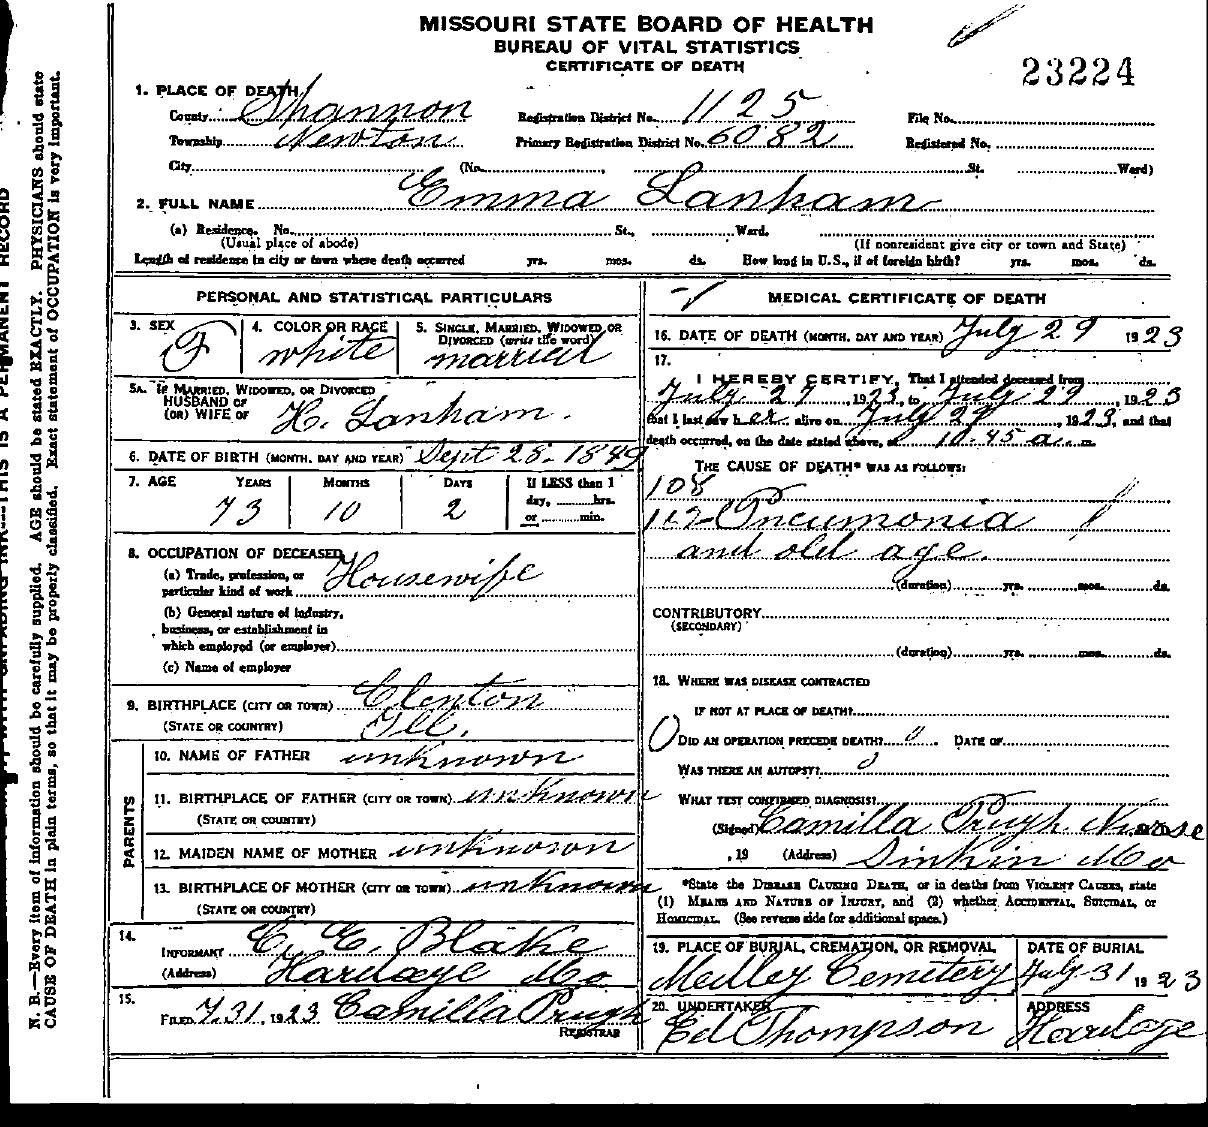 MISSOURI STATE BOARD OF HEALTH
BUREAU OF VITAL STATISTICS
CERTIFICATE OF DEATH
23224
1. PLACE OF DEATH
County Shannon Registration District No. 1125 File No.
Township Newton Primary Registration District No. 6082 Registered No.
City (No. , St. Ward)
2. FULL NAME Emma Lanham
(a) Residence. No. St., Ward.
(Usual place of abode) (If nonresident give city or town and State)
Length of residence in city or town where death occurred yrs. mos. ds. How long in U.S., if of foreign birth? yrs. mos. ds.
PERSONAL AND STATISTICAL PARTICULARS
3. SEX 4. COLOR OR RACE 5. SINGLE, MARRIED, WIDOWED OR
DIVORCED (write the word)
F white married
5A. IF MARRIED, WIDOWED, OR DIVORCED
HUSBAND OF
(OR) WIFE OF H. Lanham.
6. DATE OF BIRTH (MONTH, DAY AND YEAR) Sept 28-1849
7. AGE YEARS MONTHS DAYS If LESS than 1
day, hrs.
or min.
73 10 2
8. OCCUPATION OF DECEASED
(a) Trade, profession, or
particular kind of work Housewife
(b) General nature of industry,
business, or establishment in
which employed (or employer)
(c) Name of employer
9. BIRTHPLACE (CITY OR TOWN) Clenton
(STATE OR COUNTRY) Ill.
PARENTS
10. NAME OF FATHER unknown
11. BIRTHPLACE OF FATHER (CITY OR TOWN) unknown
(STATE OR COUNTRY)
12. MAIDEN NAME OF MOTHER unknown
13. BIRTHPLACE OF MOTHER (CITY OR TOWN) unknown
(STATE OR COUNTRY)
14.
INFORMANT C. E. Blake
(Address) Mo
15.
FILED 7.31, 1923 Camilla Pugh
REGISTRAR
MEDICAL CERTIFICATE OF DEATH
16. DATE OF DEATH (MONTH, DAY AND YEAR) July 29 1923
17.
I HEREBY CERTIFY, That I attended deceased from
July 27, 1923, to July 29, 1923
that I last saw her alive on July 29, 1923, and that
death occurred, on the date stated above, at 10.45 a. m.
THE CAUSE OF DEATH* WAS AS FOLLOWS:
108
Pneumonia
and old age.
(duration) yrs. mos. ds.
CONTRIBUTORY
(SECONDARY)
(duration) yrs. mos. ds.
18. WHERE WAS DISEASE CONTRACTED
IF NOT AT PLACE OF DEATH?
DID AN OPERATION PRECEDE DEATH? 0 DATE OF
WAS THERE AN AUTOPSY? 0
WHAT TEST CONFIRMED DIAGNOSIS?
(Signed) Camilla Pugh Nurse
, 19 (Address) Sinkin Mo
*State the DISEASE CAUSING DEATH, or in deaths from VIOLENT CAUSES, state
(1) MEANS AND NATURE OF INJURY, and (2) whether ACCIDENTAL, SUICIDAL, or
HOMICIDAL. (See reverse side for additional space.)
19. PLACE OF BURIAL, CREMATION, OR REMOVAL DATE OF BURIAL
Medley Cemetery July 31 1923
20. UNDERTAKER ADDRESS
Ed Thompson
N. B.—Every item of information should be carefully supplied. AGE should be stated EXACTLY. PHYSICIANS should state
CAUSE OF DEATH in plain terms, so that it may be properly classified. Exact statement of OCCUPATION is very important.